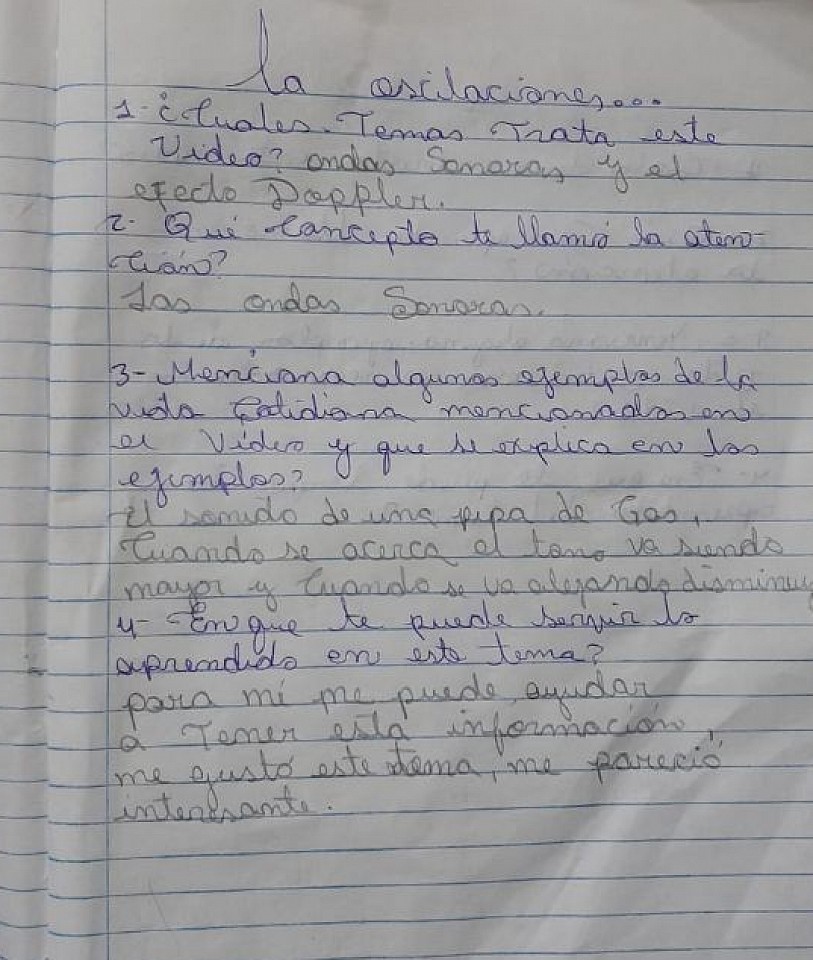 la oscilaciones...
1- ¿Cuales Temas Trata este
Video? ondas Sonoras y el
efecto Doppler.
2- Qué Concepto te llamó la aten-
ción?
Las ondas Sonoras.
3- Menciona algunos ejemplos de la
vida Cotidiana mencionados en
el Video y que se explica en los
ejemplos?
El sonido de una pipa de Gas,
Cuando se acerca el tono va siendo
mayor y Cuando se va alejando disminuy
4- En que te puede servir lo
aprendido en este tema?
para mi me puede ayudar
a Tener esta información,
me gustó este tema, me pareció
interesante.